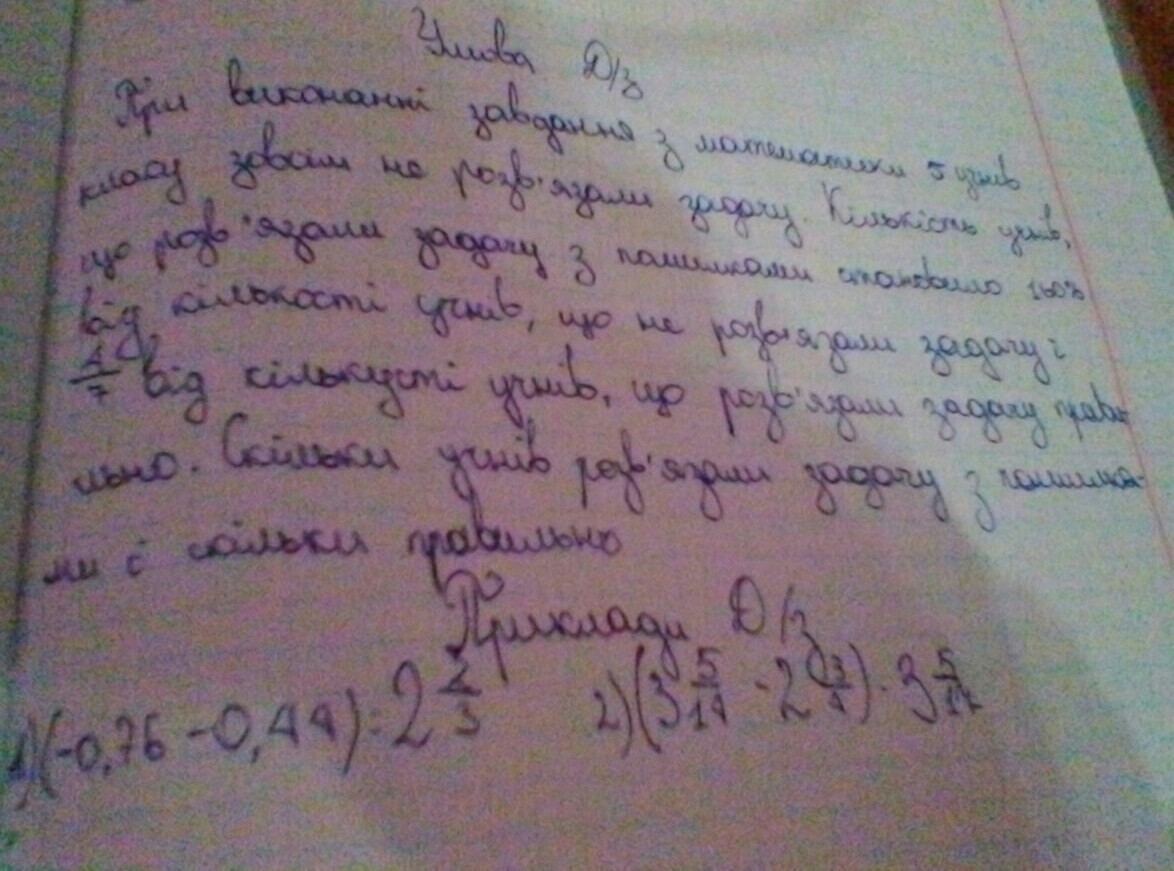 Умова Д/з
При виконанні завдання з математики 5 учнів
класу зовсім не розв'язали задачу. Кількість учнів,
що розв'язали задачу з помилками становило
від кількості учнів, що не розв'язали задачу і
4/7 від кількусті учнів, що розв'язали задачу прави
льно. Скільки учнів розв'язали задачу з помилка-
ми і скільки правильно
Приклади Д/з
1)(-0,76 - 0,44) : 2 2/3 2)(3 5/14 - 2 3/4) · 3 5/